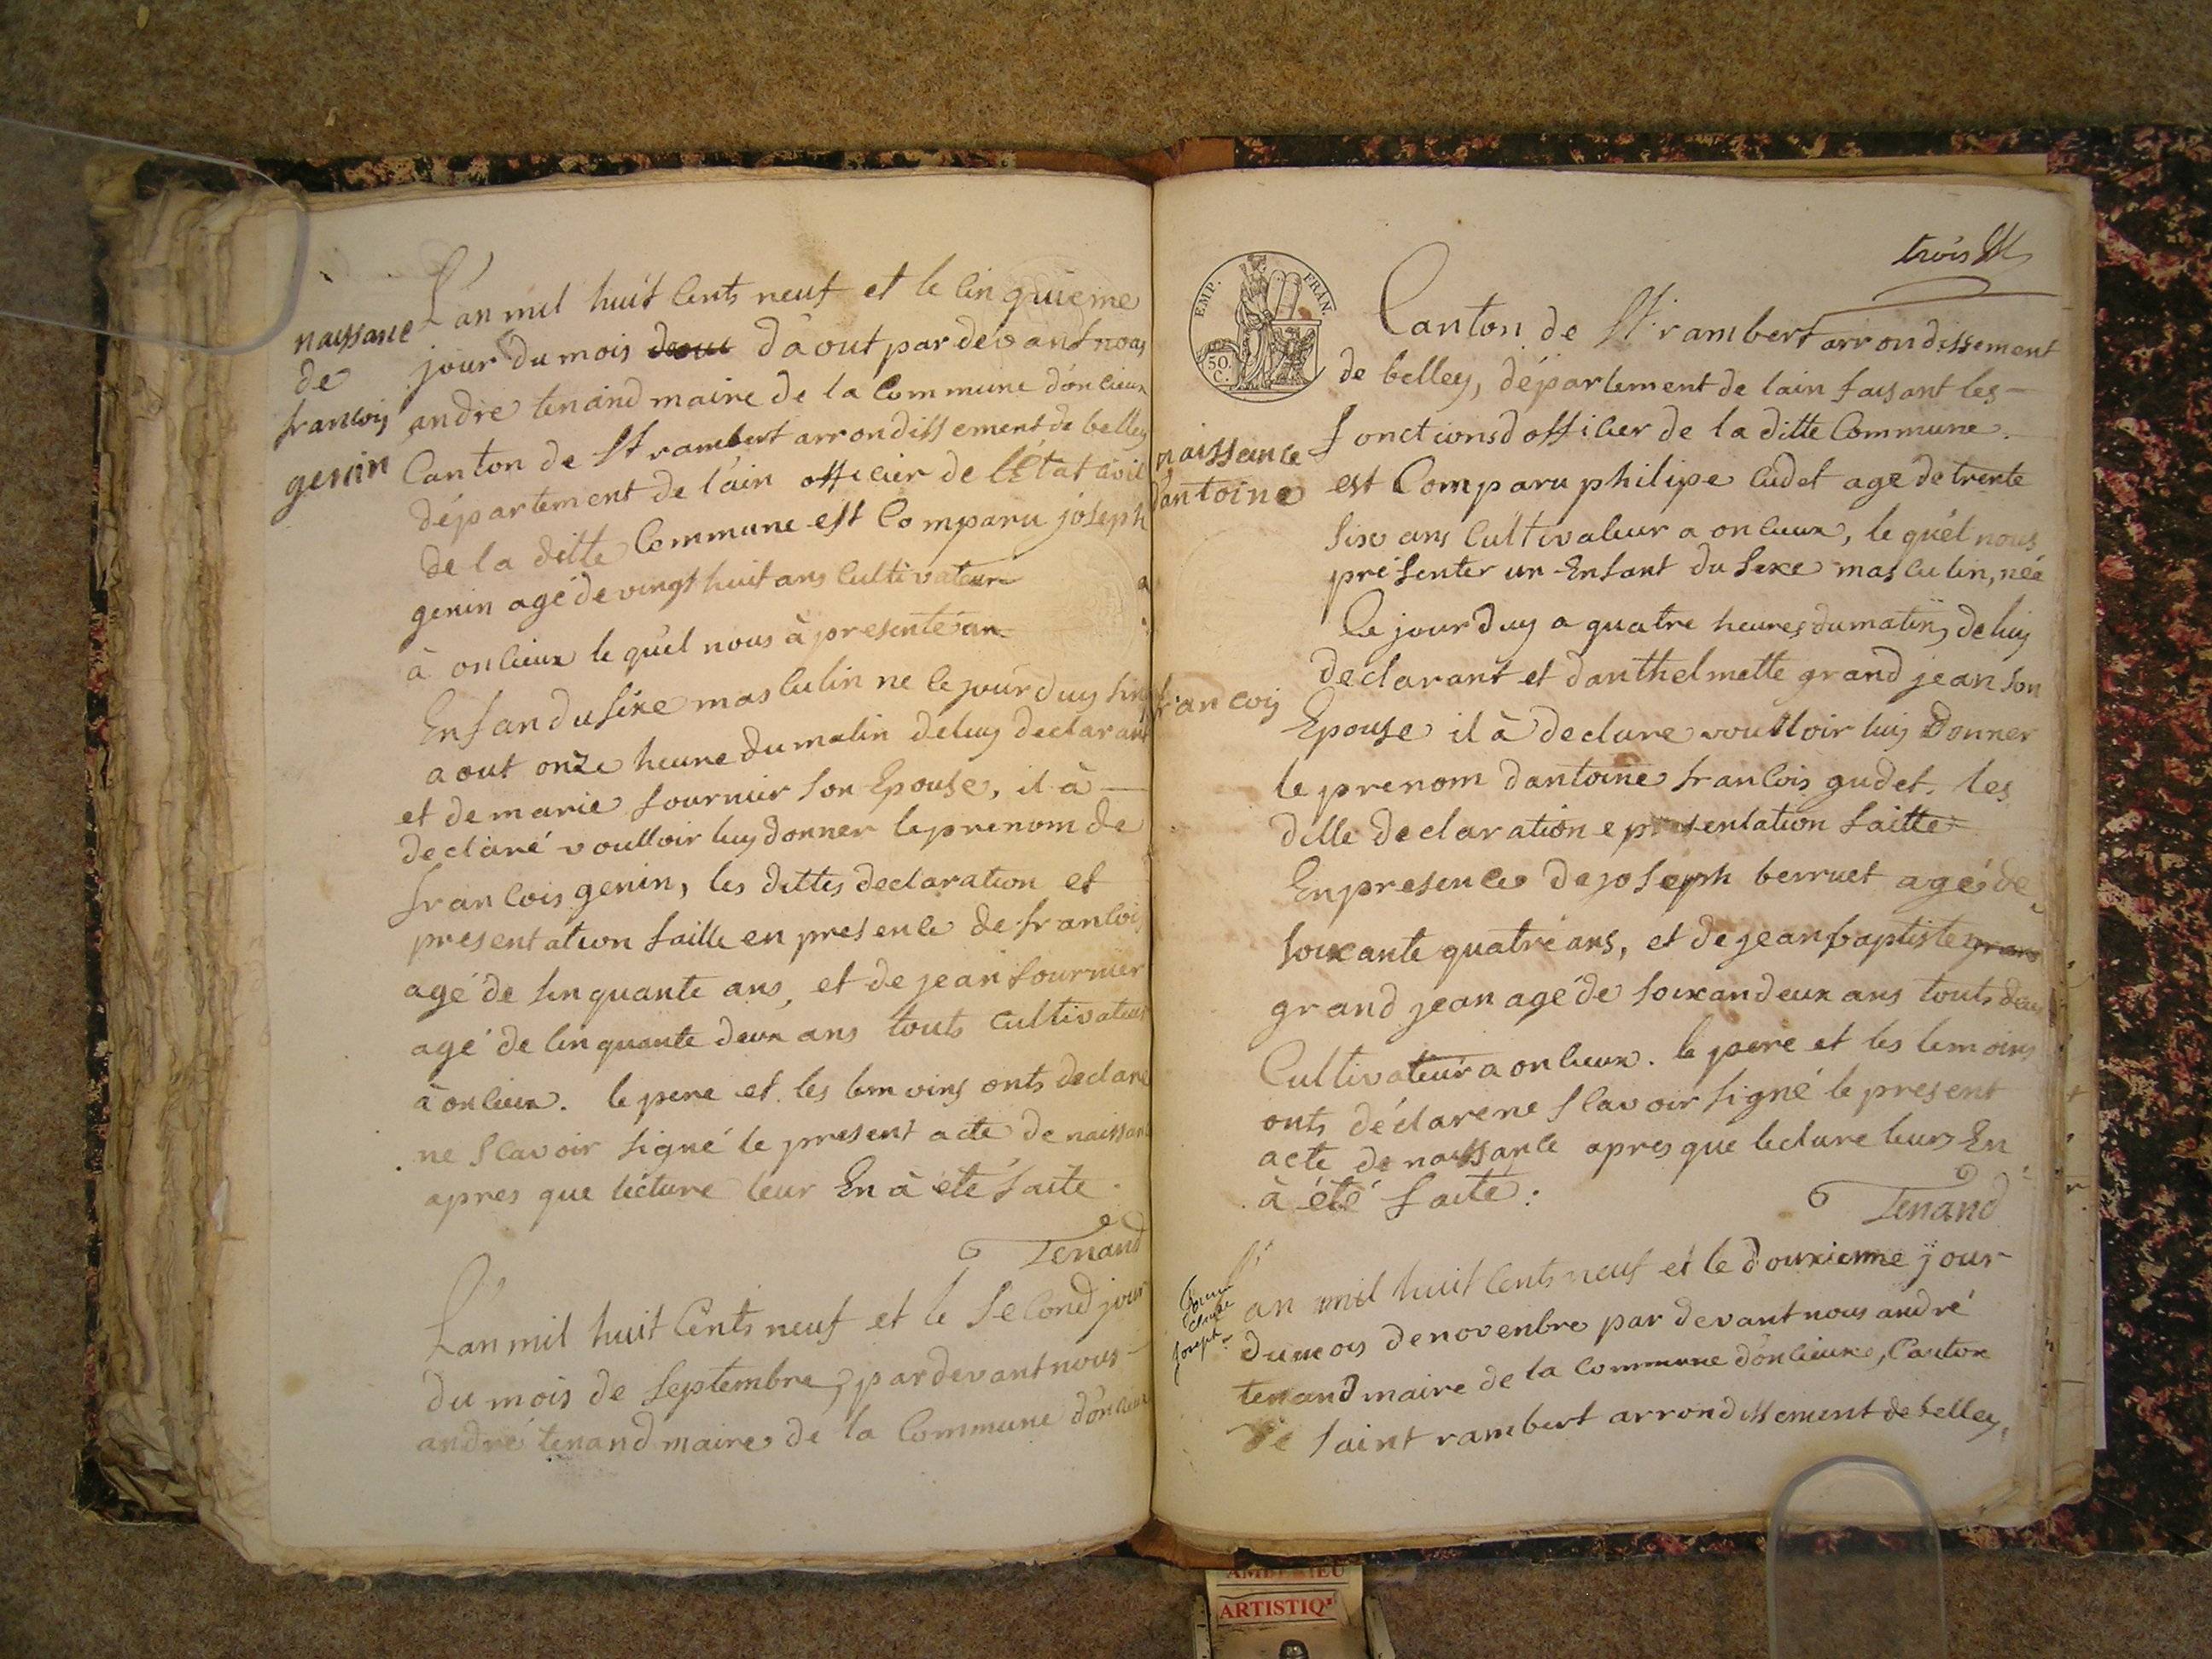 naissance
de
francois
genin
L'an mil huit Cents neuf et le Cinquieme
jour du mois d'aout par devant nous
andre tenand maire de la Commune d'onCieux
Canton de St rambert arrondissement de belley
département de l'ain officier de l'État Civil
de la ditte Commune est Comparu joseph
genin agé de vingt huit ans Cultivateur
à onCieux le quel nous à presenté un
Enfan du sexe masCulin ne Ce jour duy Sinq
aout onze heure du matin deluy declarant
et de marie fournier son Epouse, il à
declaré voulloir luy donner le prenom de
franCois genin, les dittes declaration et
presentation faitte en presenCe de franCois
agé de Sinquante ans, et de jean fournier
agé de Cinquante deux ans touts Cultivateur
à onCieux. le pere et les temoins onts declaré
ne sCavoir signé le present acte de naissanc
apres que lécture leur En à été faite.
Tenand
L'an mil huit Cents neuf et le seCond jour
du mois de Septembre, par devant nous
andré tenand maire de la Commune d'onCieux
trois
EMP. FRAN.
50.
C.
Canton de St rambert arrondissement
de belley, département de lain faisant les
fonctions d officier de la ditte Commune.
naissance
d'antoine
francois
est Comparu philipe Cudet age de trente
Six ans Cultivateur a onCieux, le quél nous
présenter un Enfant du Sexe masCulin, née
Ce jour duy a quatre heures du matin, de luy
declarant et danthelmette grand jean son
Epouse il à declare voulloir luy Donner
le prenom dantoine franCois gudet. les
ditte declaration e presentation faitte
En presence de joseph berruet agé de
soixante quatre ans, et de jean baptiste
grand jean agé de soixan deux ans touts deux
Cultivateur a onCieux. le pere et les temoins
onts déclare ne sCavoir signé le present
acte de naissance apres que lecture leurs En
à été faite:
Tenand
Claude
Joseph
L'an mil huit Cents neuf et le douxieme jour
du mois de novenbre par devant nous andré
tenand maire de la Commune d'onCieux, Canton
de saint rambert arrondissement de belley,
ARTISTIQ